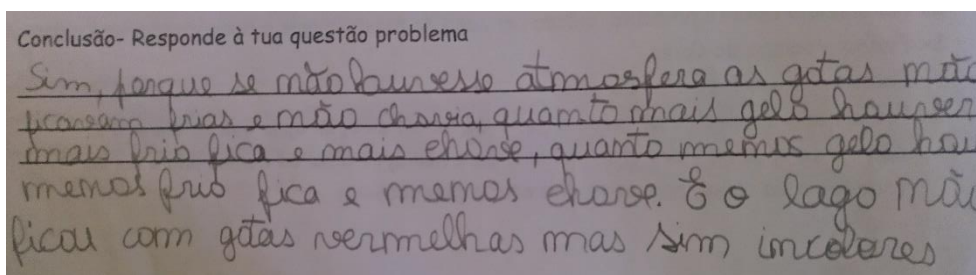 Conclusão- Responde à tua questão problema
Sim, porque se não houvesse atmosfera as gotas não
ficaream frias e não choria, quanto mais gelo houver
mais frio fica e mais chove, quanto menos gelo hou
menos frio fica e menos chove. E o lago nã
ficou com gotas vermelhas mas sim incolores